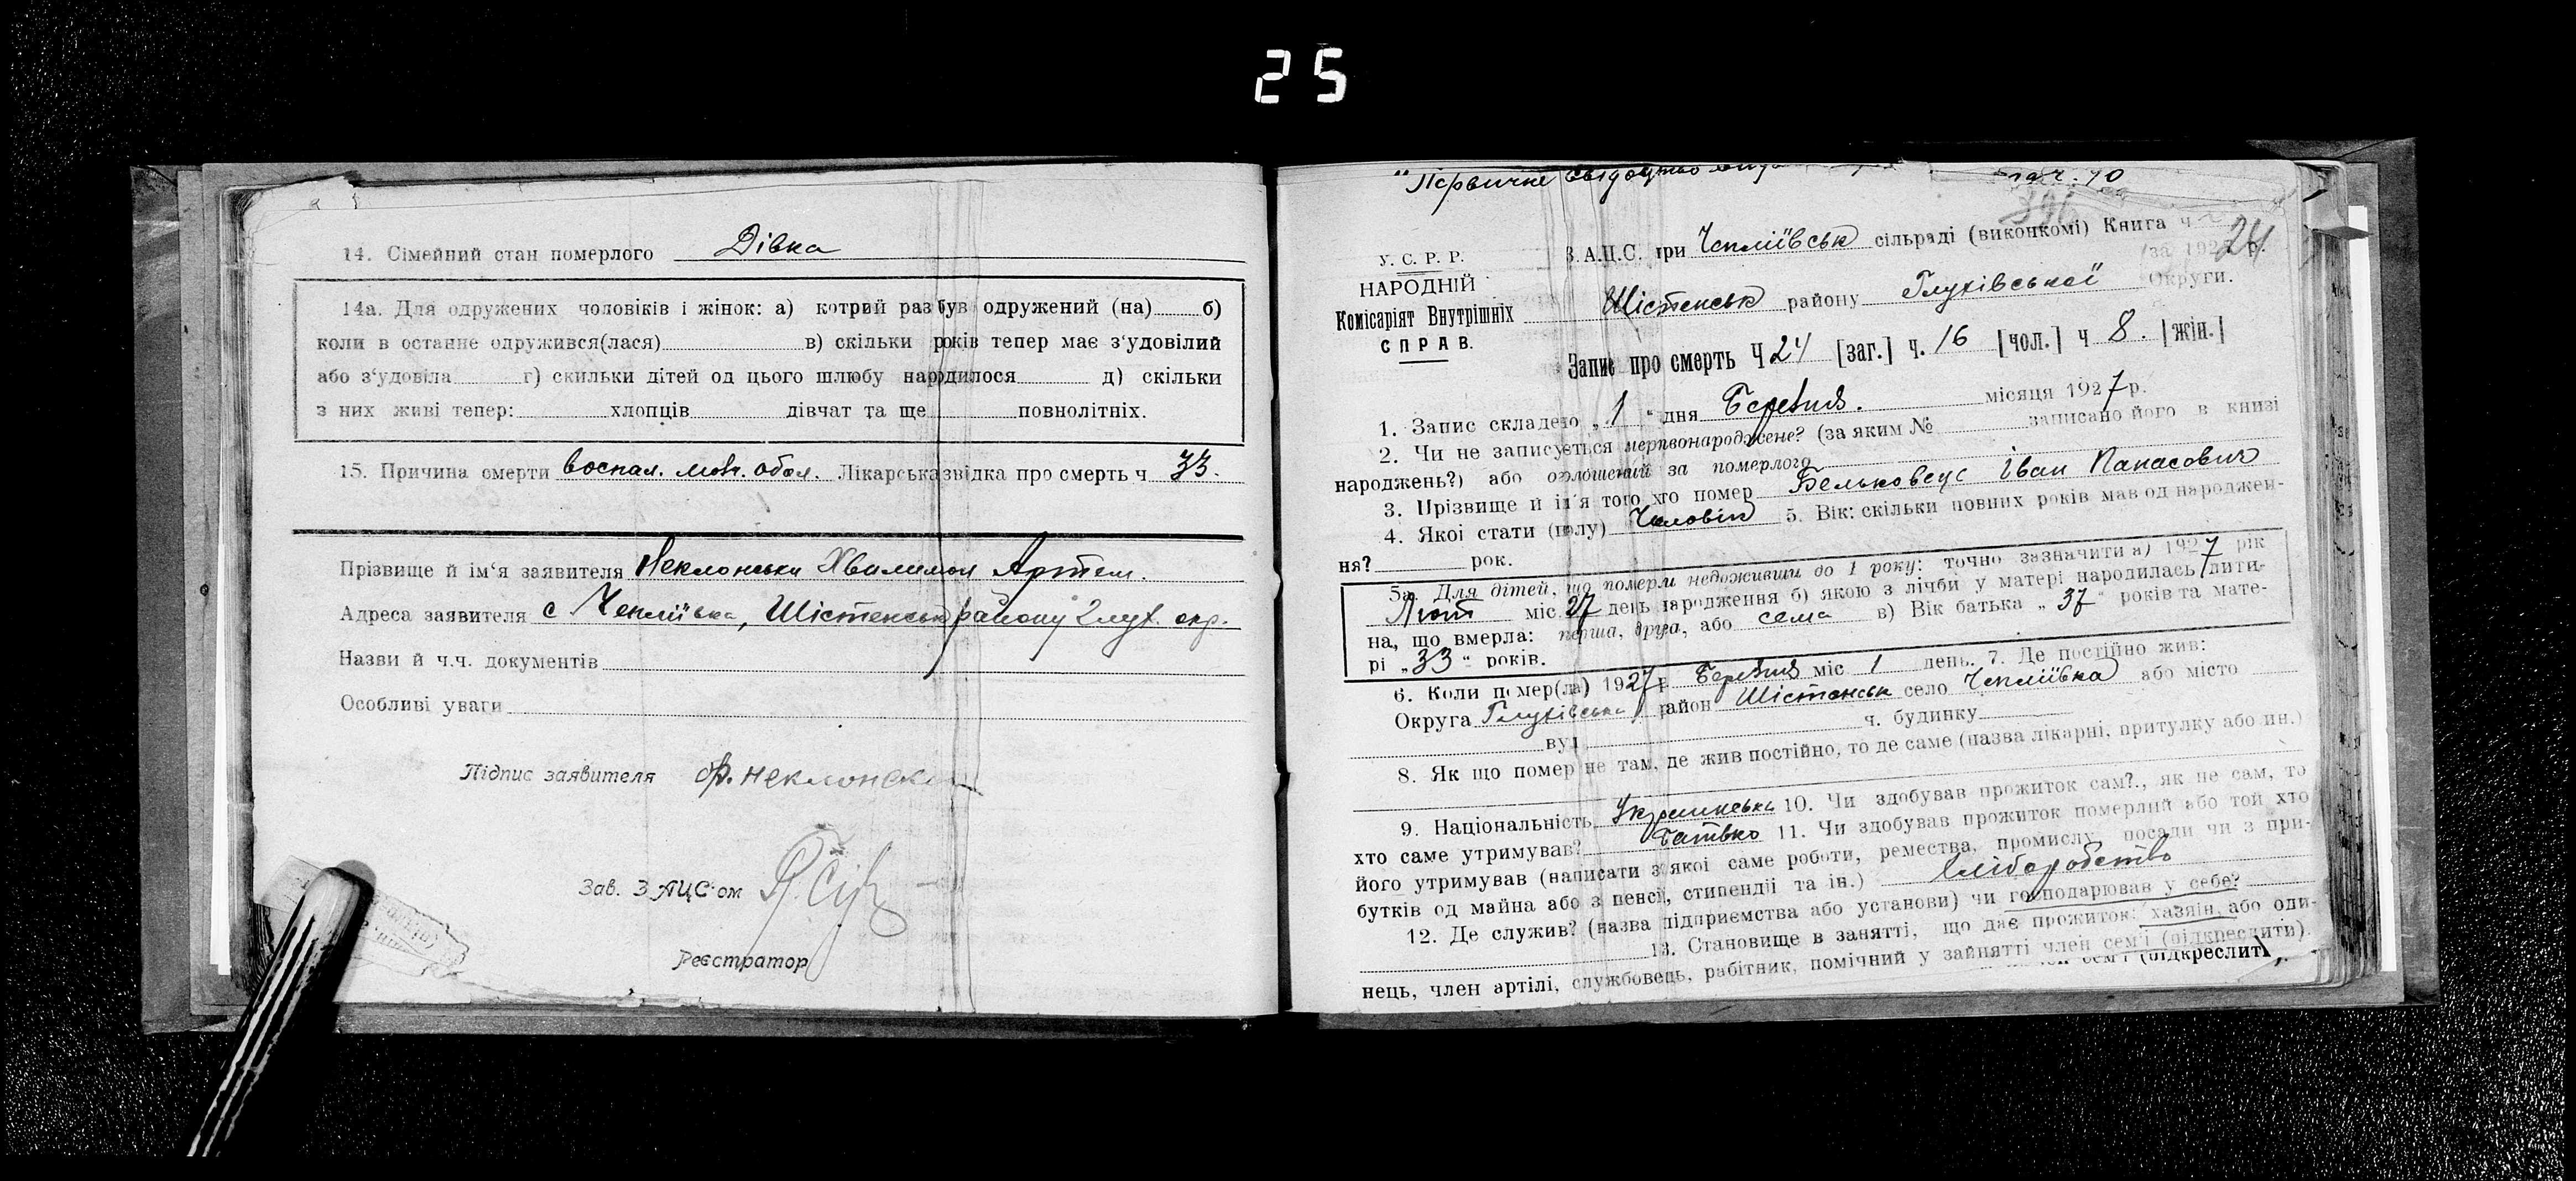 25
14. Сімейний стан померлого Дівка
14а. Для одружених чоловіків і жінок: а) котрий раз був одружений (на) б)
коли в останнє одружився(лася) в) скільки років тепер має з'удовілий
або з'удовіла г) скильки дітей од цього шлюбу народилося д) скільки
з них живі тепер: хлопців дівчат та ще повнолітніх.
15. Причина смерти воспал. мозг. обол. Лікарська звідка про смерть ч 33.
Прізвище й ім'я заявителя Неклонськи Хвилимон Артем.
Адреса заявителя с Чепліївка, Шістенськ району Глух. окр.
Назви й ч.ч. документів
Особливі уваги
Підпис заявителя Ф. Неклонски
Зав. З АЦС'ом
Реєстратор
"Первичне свідоцтво
У. С. Р. Р.
НАРОДНІЙ
Комісаріят Внутрішніх
СПРАВ.
З.А.Ц.С. при Чепліївськ сільраді (виконкомі) Книга ч
24
(за 192 р.
Шістенськ району Глухівської Округи.
Запис про смерть Ч 24 [заг.] ч. 16 [чол.] ч 8. [жін.]
1. Запис складено „1" дня Березня. місяця 1927 р.
2. Чи не записується мертвонароджене? (за яким № записано його в книзі
народжень?) або оголошений за померлого
3. Прізвище й ім'я того хто помер Бельковець Іван Панасович
4. Якої стати (полу) Чоловік 5. Вік: скільки повних років мав од народжен-
ня? рок.
5а. Для дітей, що померли недоживши до 1 року: точно зазначити а) 1927 рік
Лют міс. 27 день народження б) якою з лічби у матері народилась дити-
на, що вмерла: перша, друга, або сема в) Вік батька „37" років та мате-
рі „33" років.
6. Коли помер(ла) 1927 р Березня міс 1 день. 7. Де постійно жив:
Округа Глухівська район Шістенськ село Чепліївка або місто
вул ч. будинку
8. Як що помер не там, де жив постійно, то де саме (назва лікарні, притулку або ин.)
9. Національність Українська 10. Чи здобував прожиток сам?., як не сам, то
хто саме утримував? Батько 11. Чи здобував прожиток померлий або той хто
його утримував (написати з якої саме роботи, ремества, промислу, посади чи з при-
бутків од майна або з пенсії, стипендії та ін.) хліборобство
12. Де служив? (назва підприємства або установи) чи господарював у себе?
13. Становище в занятті, що дає прожиток: хазяін, або оди-
нець, член артілі, службовець, рабітник, помічний у зайнятті член сем'ї (підкреслити).